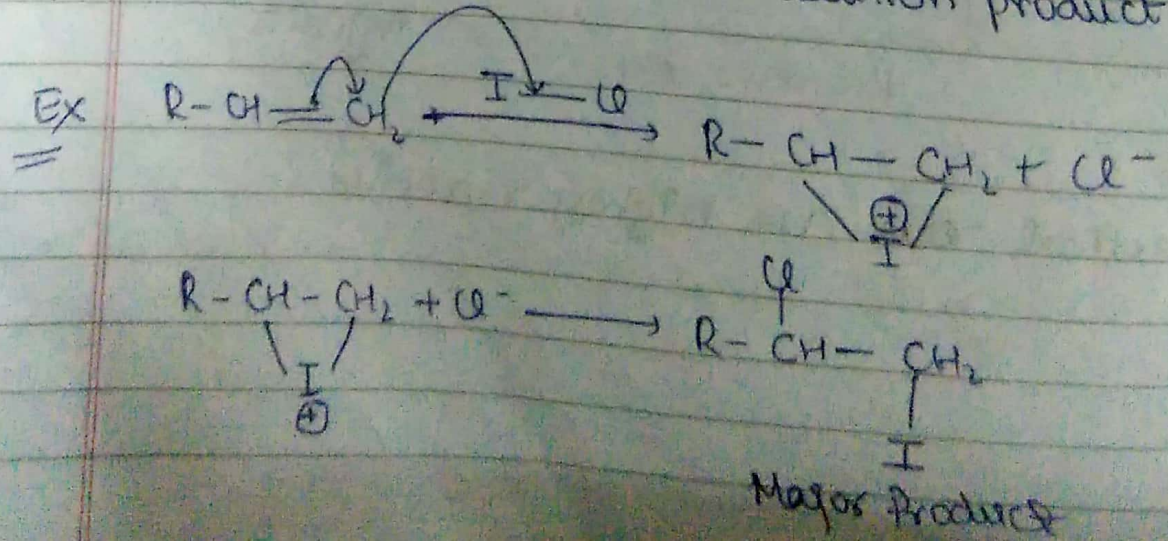 product
Ex R-CH=CH₂ I-Cl R-CH-CH₂ + Cl⁻
⊕
I
Cl
R-CH-CH₂ + Cl⁻ → R-CH-CH₂
I
⊕
I
Major Product